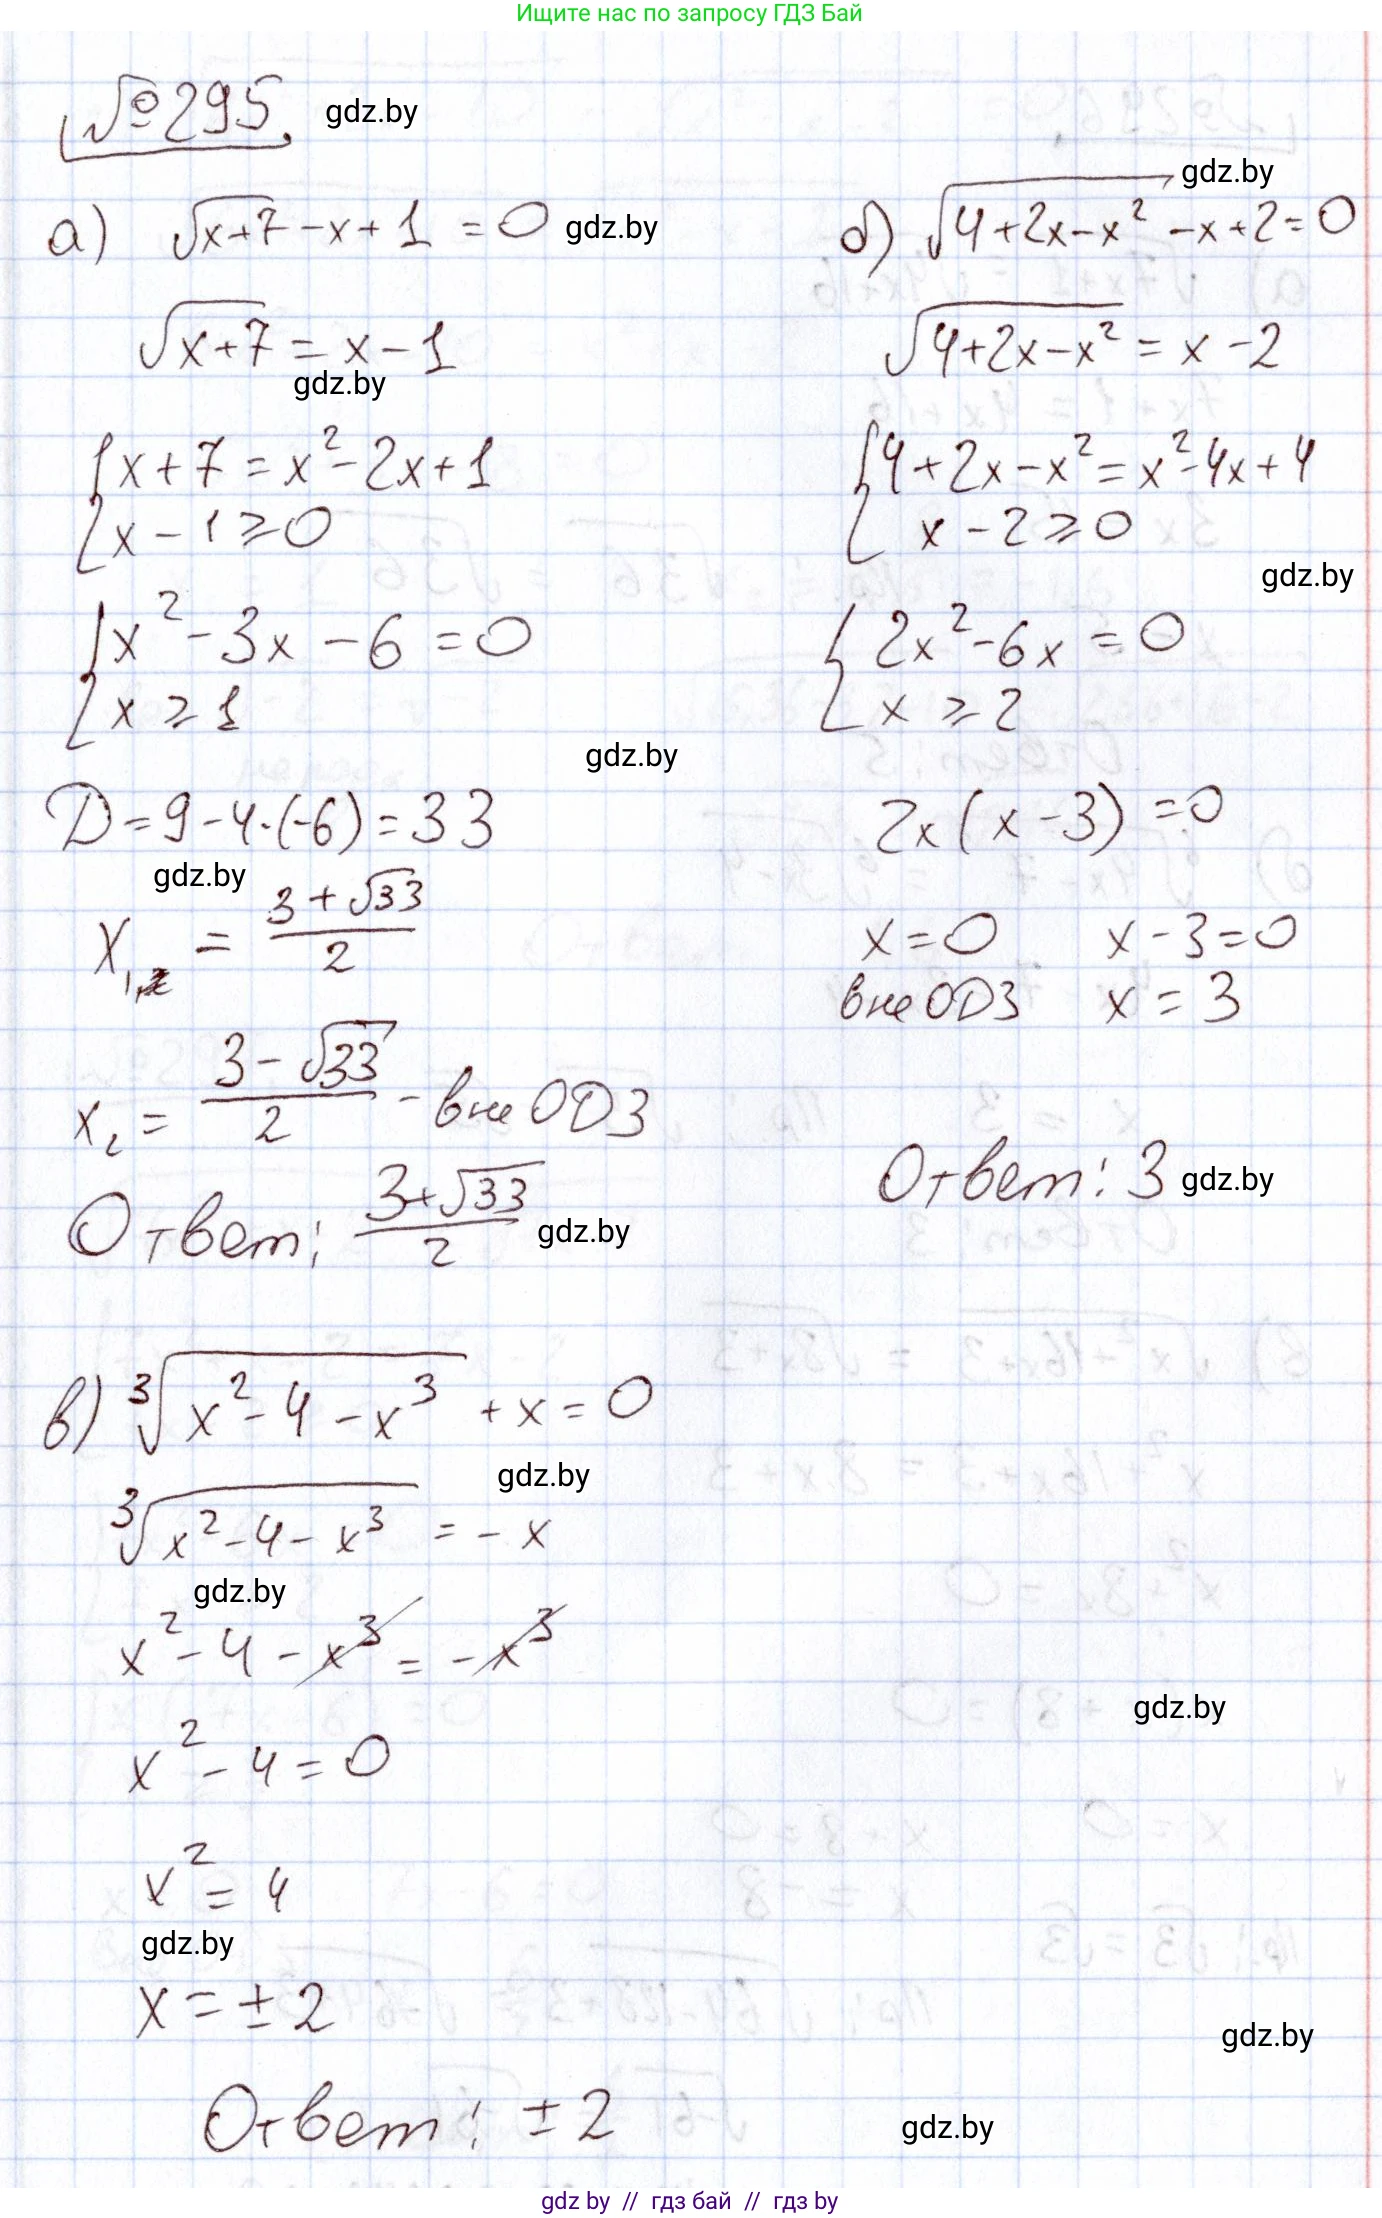 Ищите нас по запросу ГДЗ Бай
№295. gdz.by
а) √(x+7) - x + 1 = 0 gdz.by
√(x+7) = x - 1
gdz.by
{ x + 7 = x² - 2x + 1
{ x - 1 ≥ 0
{ x² - 3x - 6 = 0
{ x ≥ 1
gdz.by
D = 9 - 4·(-6) = 33
gdz.by
x₁ = (3 + √33)/2
x₂ = (3 - √33)/2 - вне ОДЗ
Ответ: (3 + √33)/2 gdz.by
gdz.by
б) √(4 + 2x - x²) - x + 2 = 0
√(4 + 2x - x²) = x - 2
{ 4 + 2x - x² = x² - 4x + 4
{ x - 2 ≥ 0
gdz.by
{ 2x² - 6x = 0
{ x ≥ 2
2x(x - 3) = 0
x = 0 x - 3 = 0
вне ОДЗ x = 3
Ответ: 3 gdz.by
в) ³√(x² - 4 - x³) + x = 0
gdz.by
³√(x² - 4 - x³) = - x
gdz.by
x² - 4 - x³ = - x³
gdz.by
x² - 4 = 0
x² = 4
gdz.by
x = ± 2
gdz.by
Ответ: ± 2
gdz.by
gdz by // гдз бай // гдз by